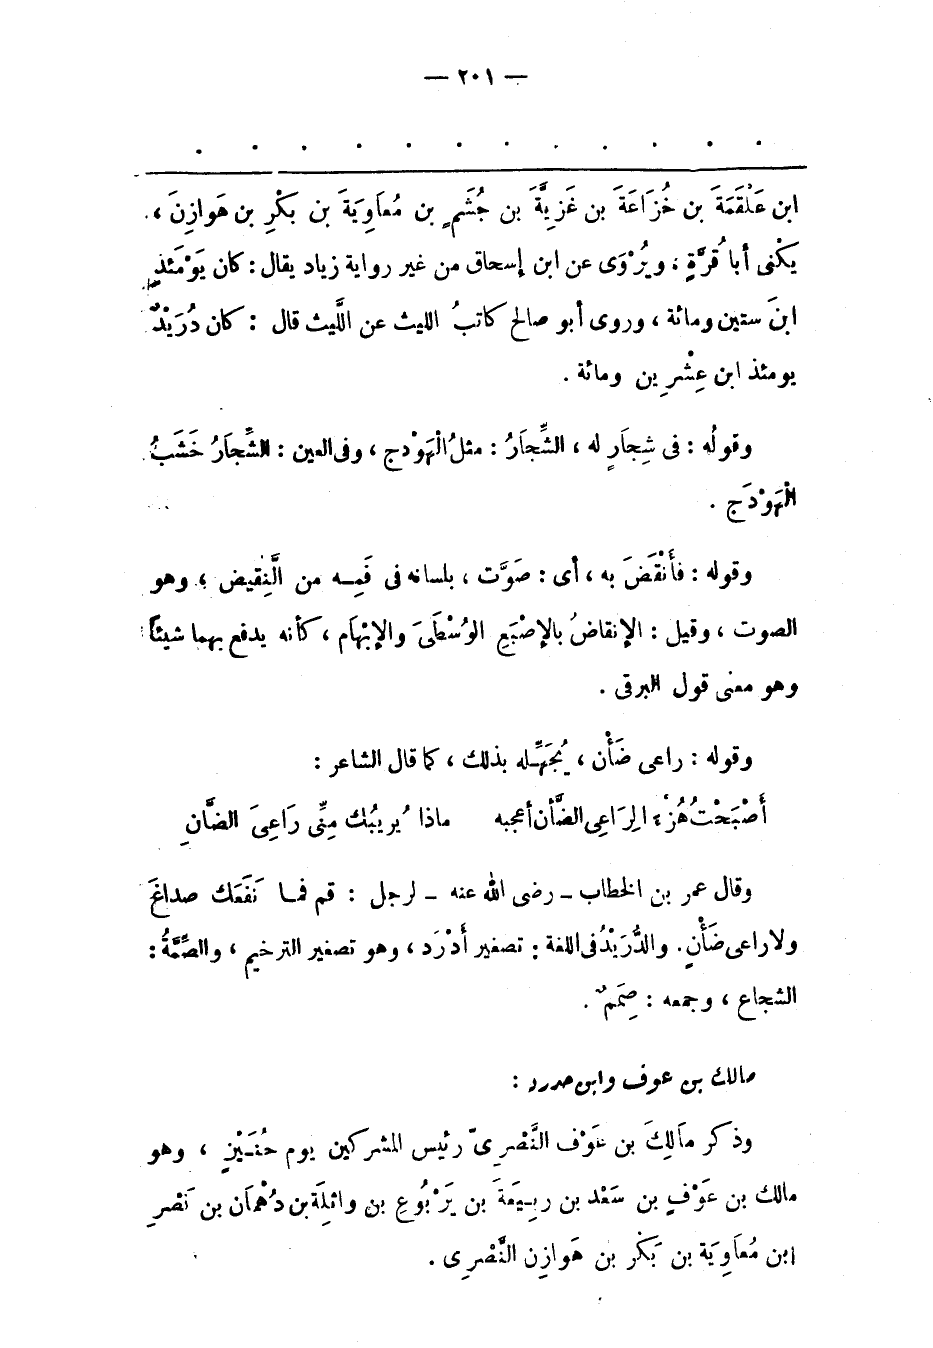 — ٢٠١ —
ابن عَلْقَمَةَ بن خُزَاعَةَ بن غَزِيَّةَ بن جُشَمٍ بن مُعَاوِيَةَ بن بَكْرِ بن هَوازِنَ ،
يَكْنى أبا قُرَّةٍ ، ويُرْوَى عن ابن إسحاق من غير رواية زياد يقال : كان يَوْمَئذٍ
ابنَ ستين ومائة ، وروى أبو صالح كاتبُ الليث عن اللَّيث قال : كان دُرَيْدٌ
يومئذ ابن عِشْرِين ومائة .
وقولُه : فى شِجَارٍ له ، الشِّجَارُ : مثلُ الْهَوْدج ، وفى العين : الشِّجَارُ خَشَبُ
الْهَوْدَج .
وقوله : فأَنْقَضَ به ، أى : صَوَّت ، بلسانه فى فَمِه من النَّقِيض ؛ وهو
الصوت ، وقيل : الإنقاضُ بالإصْبَعِ الوُسْطَىَ والإبْهَام ، كأنه يدفع بهما شيئاً
وهو معنى قول البرقى .
وقوله : راعى ضَأْن ، يُجَهِّله بذلك ، كما قال الشاعر :
أَصْبَحْتُ هُزْءًا لِرَاعِى الضَّأن أعجبه ماذا يُرِيبُك مِنِّى رَاعِىَ الضَّانِ
وقال عمر بن الخطاب – رضى الله عنه – لرجل : قم فما نَفَعَك صداغَ
ولا راعى ضَأْنٍ. والدُّرَيْدُ فى اللغة : تصغير أَدْرَد ، وهو تصغير الترخيم ، والصِّمَّةُ :
الشجاع ، وجمعه : صِمَمٌ .
مالك بن عوف وابن حدرد :
وذكر مَالِكَ بن عَوْف النَّصْرِىّ رئيس المشركين يوم حُنَيْنٍ ، وهو
مالك بن عَوْفٍ بن سَعْد بن رَبِيعَةَ بن يَرْبُوعِ بن وائلَةَ بن دُهْمَان بن نَصْرِ
ابن مُعَاوِيَة بن بَكْر بن هَوازِن النَّصْرِى .